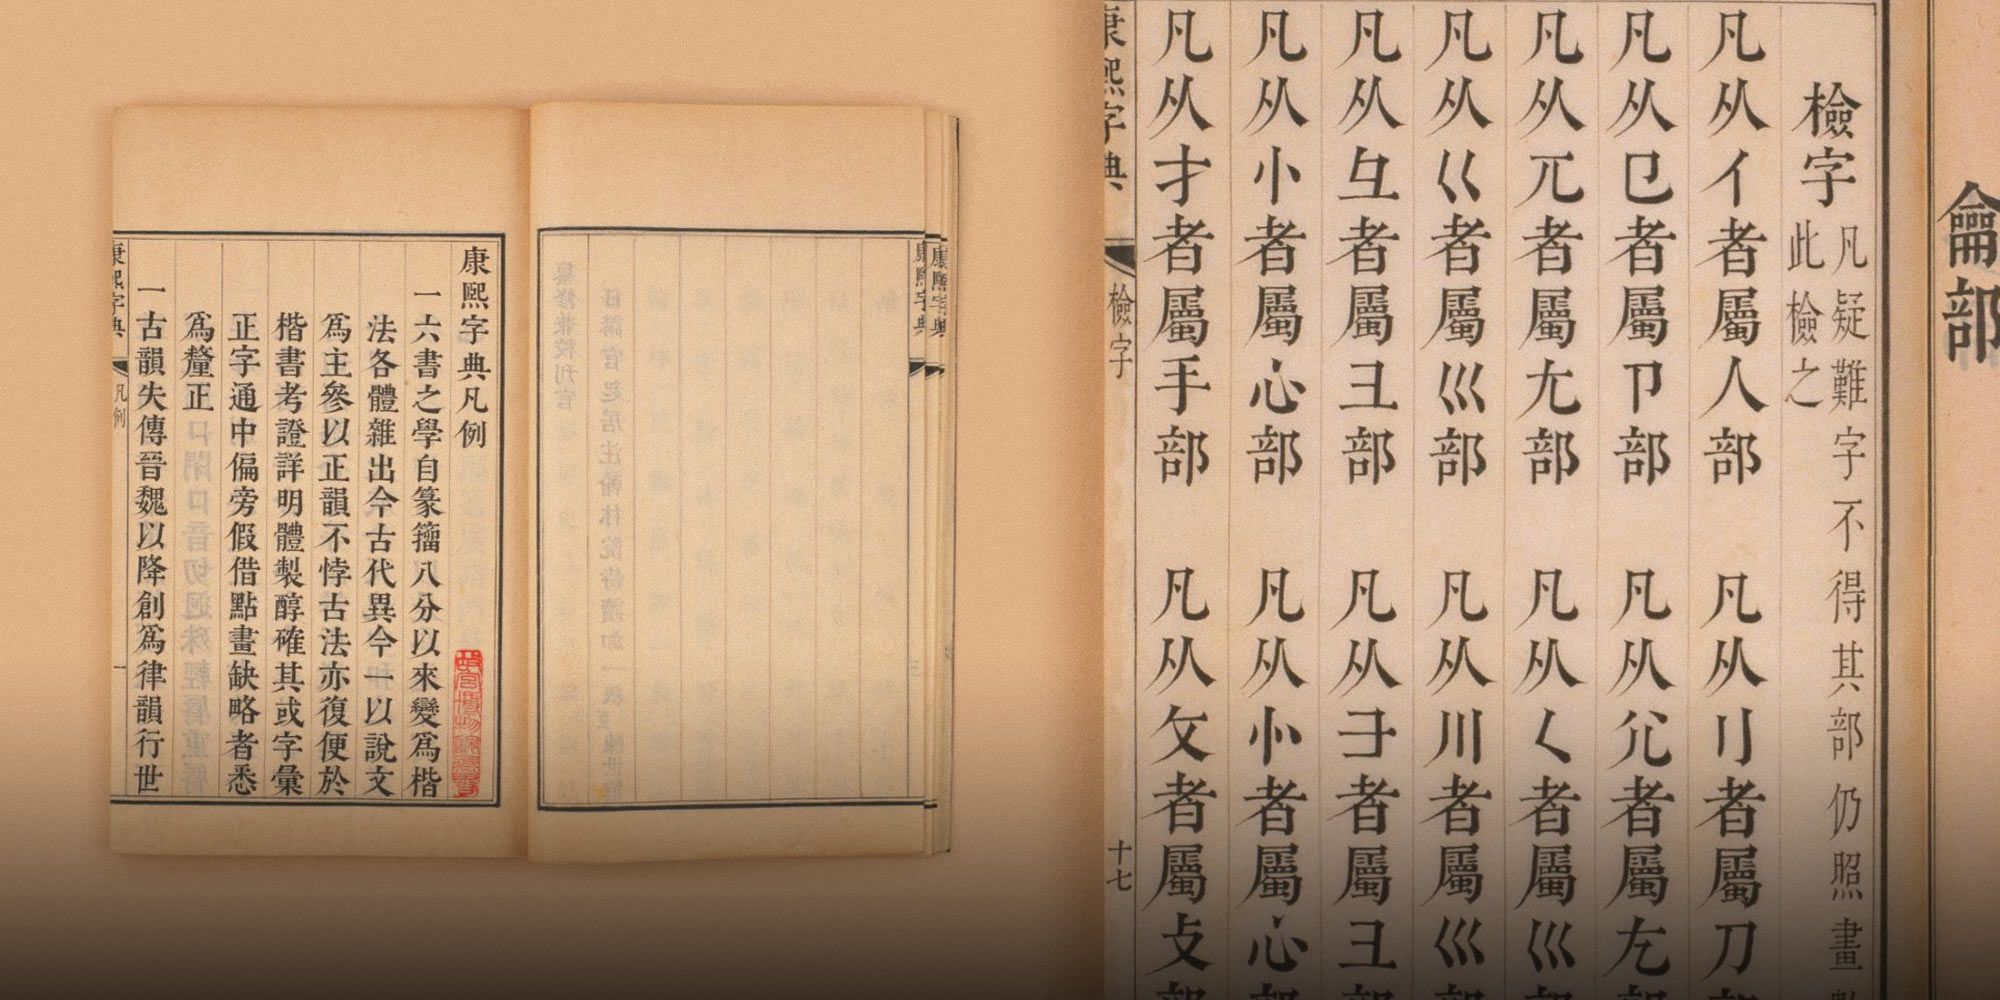 康熙字典
康熙字典
康熙字典凡例
一六書之學自篆籀八分以來變爲楷
法各體雜出今古代異今一以說文
爲主參以正韻不悖古法亦復便於
楷書考證詳明體製醇確其或字彙
正字通中偏旁假借點畫缺略者悉
爲釐正
一古韻失傳晉魏以降創爲律韻行世
康熙字典 凡例 一
龠部
檢字 凡疑難字不得其部仍照畫
此檢之
凡从亻者屬人部 凡从刂者屬刀部
凡从㔾者屬卩部 凡从尣者屬尢部
凡从兀者屬尢部 凡从𡿨者屬巛部
凡从巜者屬巛部 凡从川者屬巛部
凡从彑者屬彐部 凡从彐者屬彐部
凡从小者屬心部 凡从㣺者屬心部
凡从才者屬手部 凡从攵者屬攴部
康熙字典 檢字 十七